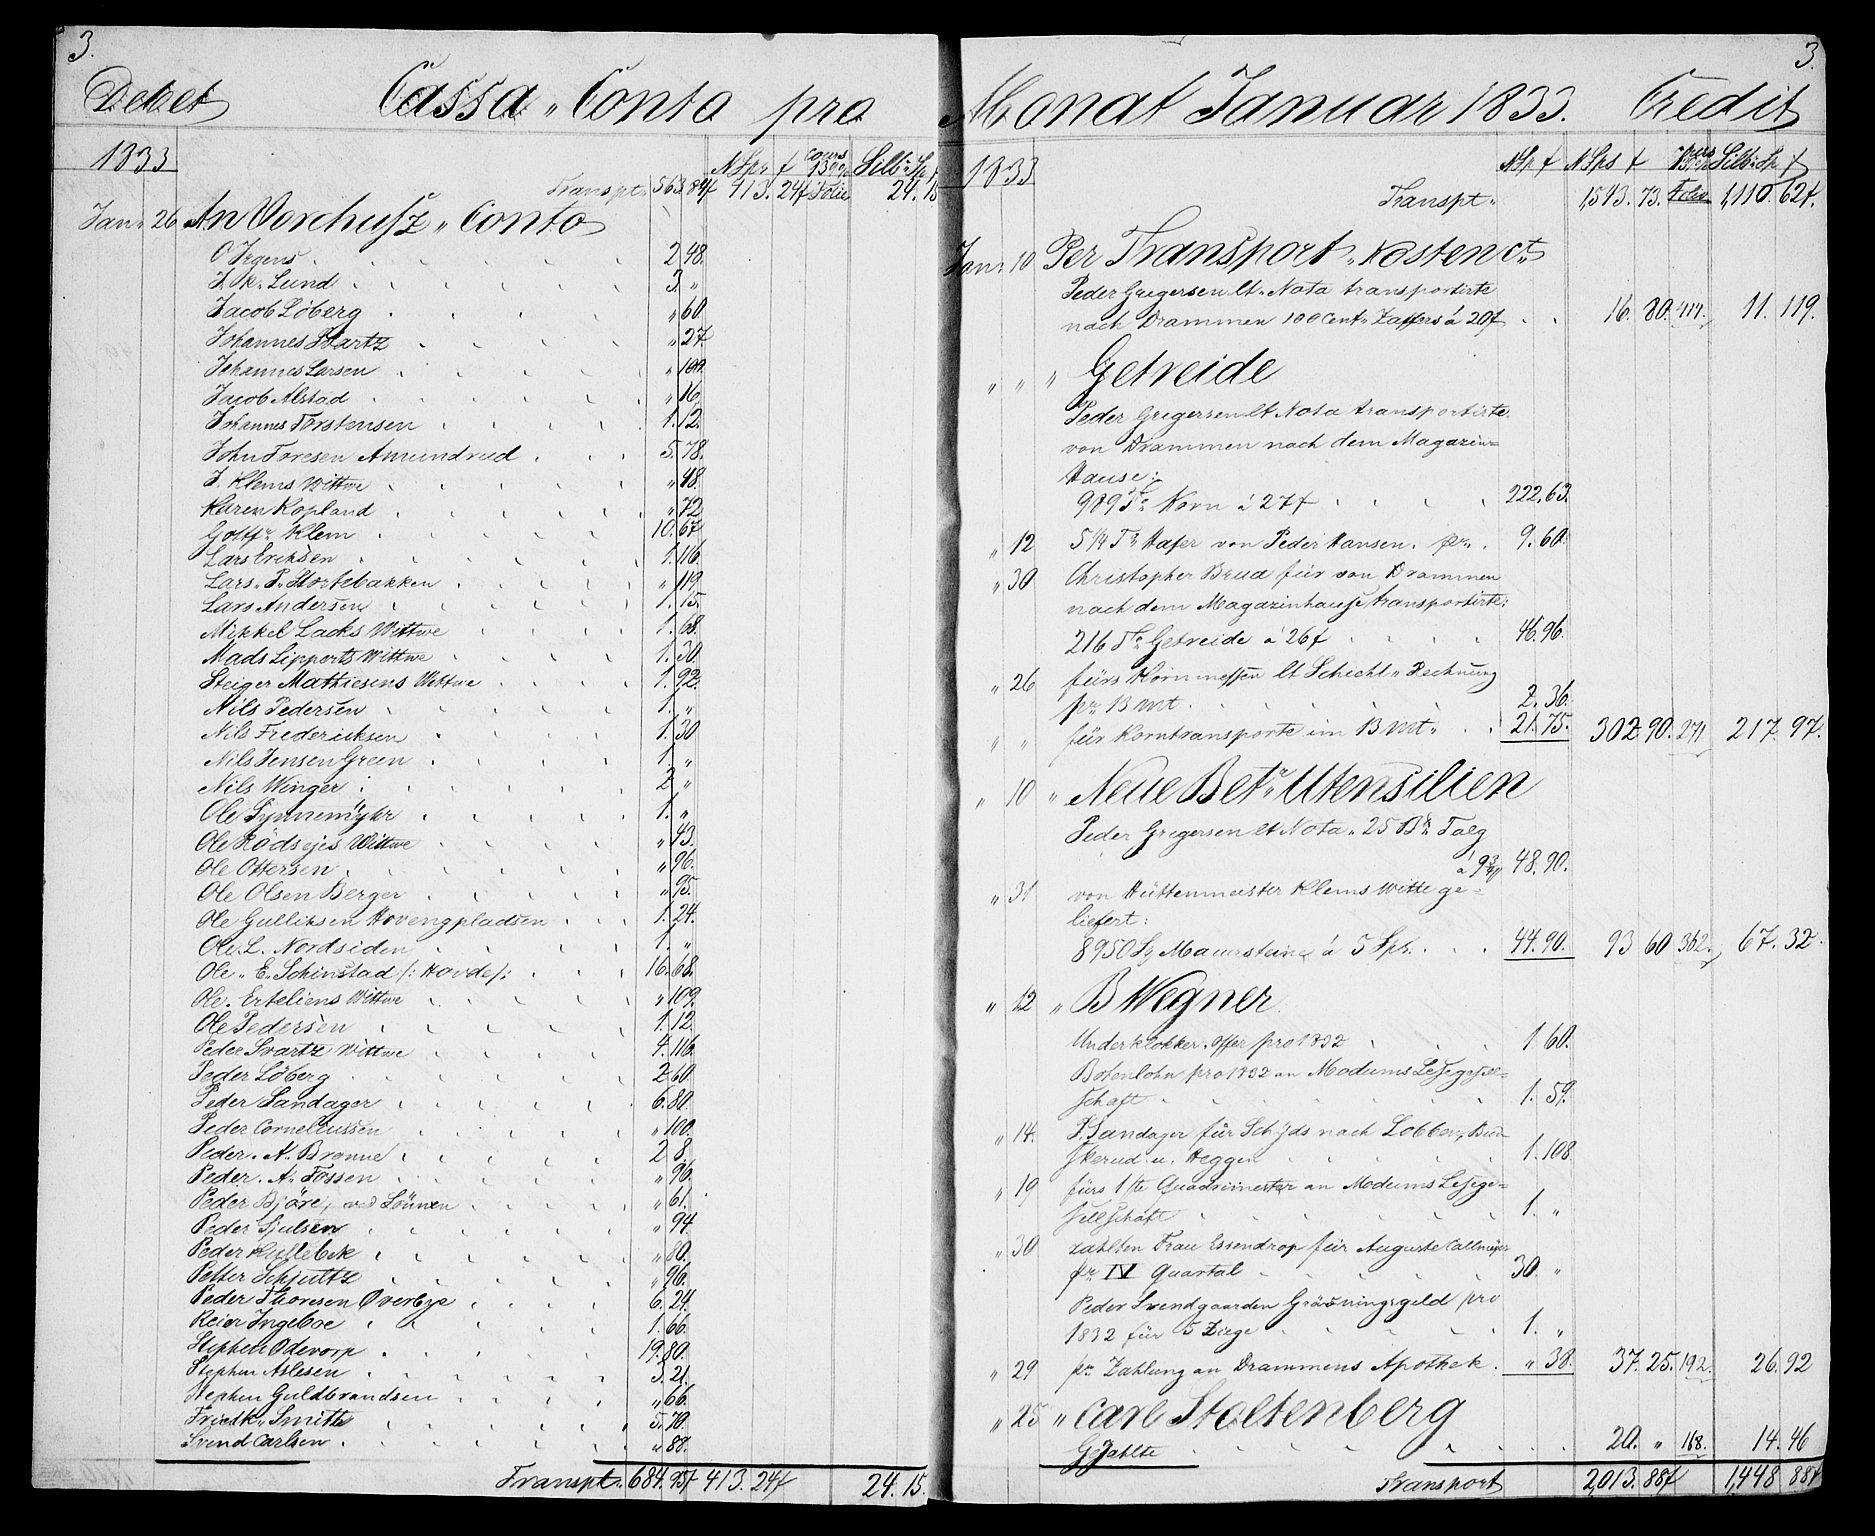 3.
Debet Cassa „ Conto pro
1833
N Sp. f Cours 139 % Silb: Sp f
Transpt. 563.84f 413. 24f Folio 24. 15
Jan. 26 An Vorchusz „ Conto
O Irgens 2 48.
Lund 3 „
Jacob Löberg „ 60
Johannes Svartz „ 27.
Johannes Larsen „ 100.
Jacob Alstad „ 16
Johannes Torstensen 1. 12.
John Toresen Amundrud 5. 78.
J. Klems Wittwe „ 48.
Karen Kopland „ 72
Gottfr. Klem 10. 67
Lars Eriksen 1. 116.
Lars. P. Stortebakken „ 119.
Lars Andersen 1. 15.
Mikkel Lacks Wittwe 1. 68.
Mads Lipperts Wittwe 1. 30.
Steiger Mathiesens Wittwe 1. 92.
Nils Pedersen 1. „
Nils Fredericksen 1. 30
Nils Jensen Green 1. „
Nils Winger 2 „
Ole Synnemÿhr 1. „
Ole Rödsejes Wittwe „ 43.
Ole Ottersen „ 96.
Ole Olsen Berger „ 95.
Ole Gulliksen Hovengpladsen 1. 24.
Ole L. Nordsiden 1. „
Ole „ E. Schinstad /: Hovde /: 16. 68.
Ole. Erteliens Wittwe „ 109.
Ole Pedersen 1. 12.
Peder Svartz Wittwe 4. 116.
Peder Löberg 2 60.
Peder Sandager 6. 80.
Peder Corneliussen „ 100.
Peder. A. Bronne 2 8.
Peder. A. Fossen „ 96.
Peder Björe, ved Lönnen „ 61.
Peder Sjulsen „ 94
Peder Kullebek „ 60.
Petter Schjultz „ 96.
Peder Thoresen Øverbye 6. 24.
Reier Ingeboe 1. 66.
Stephen Odevorp 19. 80.
Stephen Aslesen 3. 21.
Stephen Guldbrandsen „ 66.
Friedk. Smitte 5. 70.
Svend Carlsen „ 88.
Transpt. 684. 95f 413. 24f 24. 15.
3.
Monat Januar 1833. Credit
1833
N Sp f N Sps f Silb: Sp. f
Transpt. 1,543. 73. Folio 1,110. 62f.
Jan. 10 Per Transport „ Kosten Ct.
Peder Gregersen lt. Nota transportirte
nach Drammen 100 Cent. Zaffers á 20f 16. 80. 414. 11. 119.
„ „ „ Getreide
Peder Gregersen lt Nota transportirte
von Drammen nach dem Magazin-
Hause:
989 T. Korn á 27f 222. 63.
„ 12 5 1/4 T. Hafer von Peder Hansen. pr. 9. 60.
„ 30 Christopher Brud für von Drammen
nach dem Magazinhause transportirte:
216 T. Getreide á 26f 46. 96.
„ 26 fürs Kornmessen lt Schicht „ Rechnung
pr. 13 Mt. 2. 36.
„ „ für Korntransporte im 13 Mt. 21. 75. 302. 90. 271 217. 97.
„ 10 „ Neue Bet. Utensilien
Peder Gregersen lt Nota „ 25 B. Talg
á 9 3/4 48. 90.
„ 31 von Hüttenmeister Klems Witte ge-
liefert:
8950 St Mauersteine á 5 Sph. 44. 90. 93 60 362. 67. 32.
„ 12 „ B Wegner.
Underklokker. offer pro 1832 1 60.
Botenlohn pro 1832 an Modums Lesegesel-
schaft 1. 59.
„ 14. P. Sandager für Schÿds nach Lobben, Bus-
kerud. u. Heggen 1. 108.
„ 19 fürs 1te Quadrimester an Modums Lesege-
sellschaft 1. „
„ 30 zahlten Frau Essendrop für Auguste Callmeyer
pr. IV Quartal 30. „
Peder Svendgaarden Gräsningsgeld pro
1832 für 5 Ziege 1. „
„ 29 pr. Zahlung an Drammens Apothek. „ 38. 37. 25. 192. 26. 92
„ 25 „ Carl Stoltenberg
Gezahlte 20. „ 168. 14. 46
Transport 2,013. 88f 1,448 88f